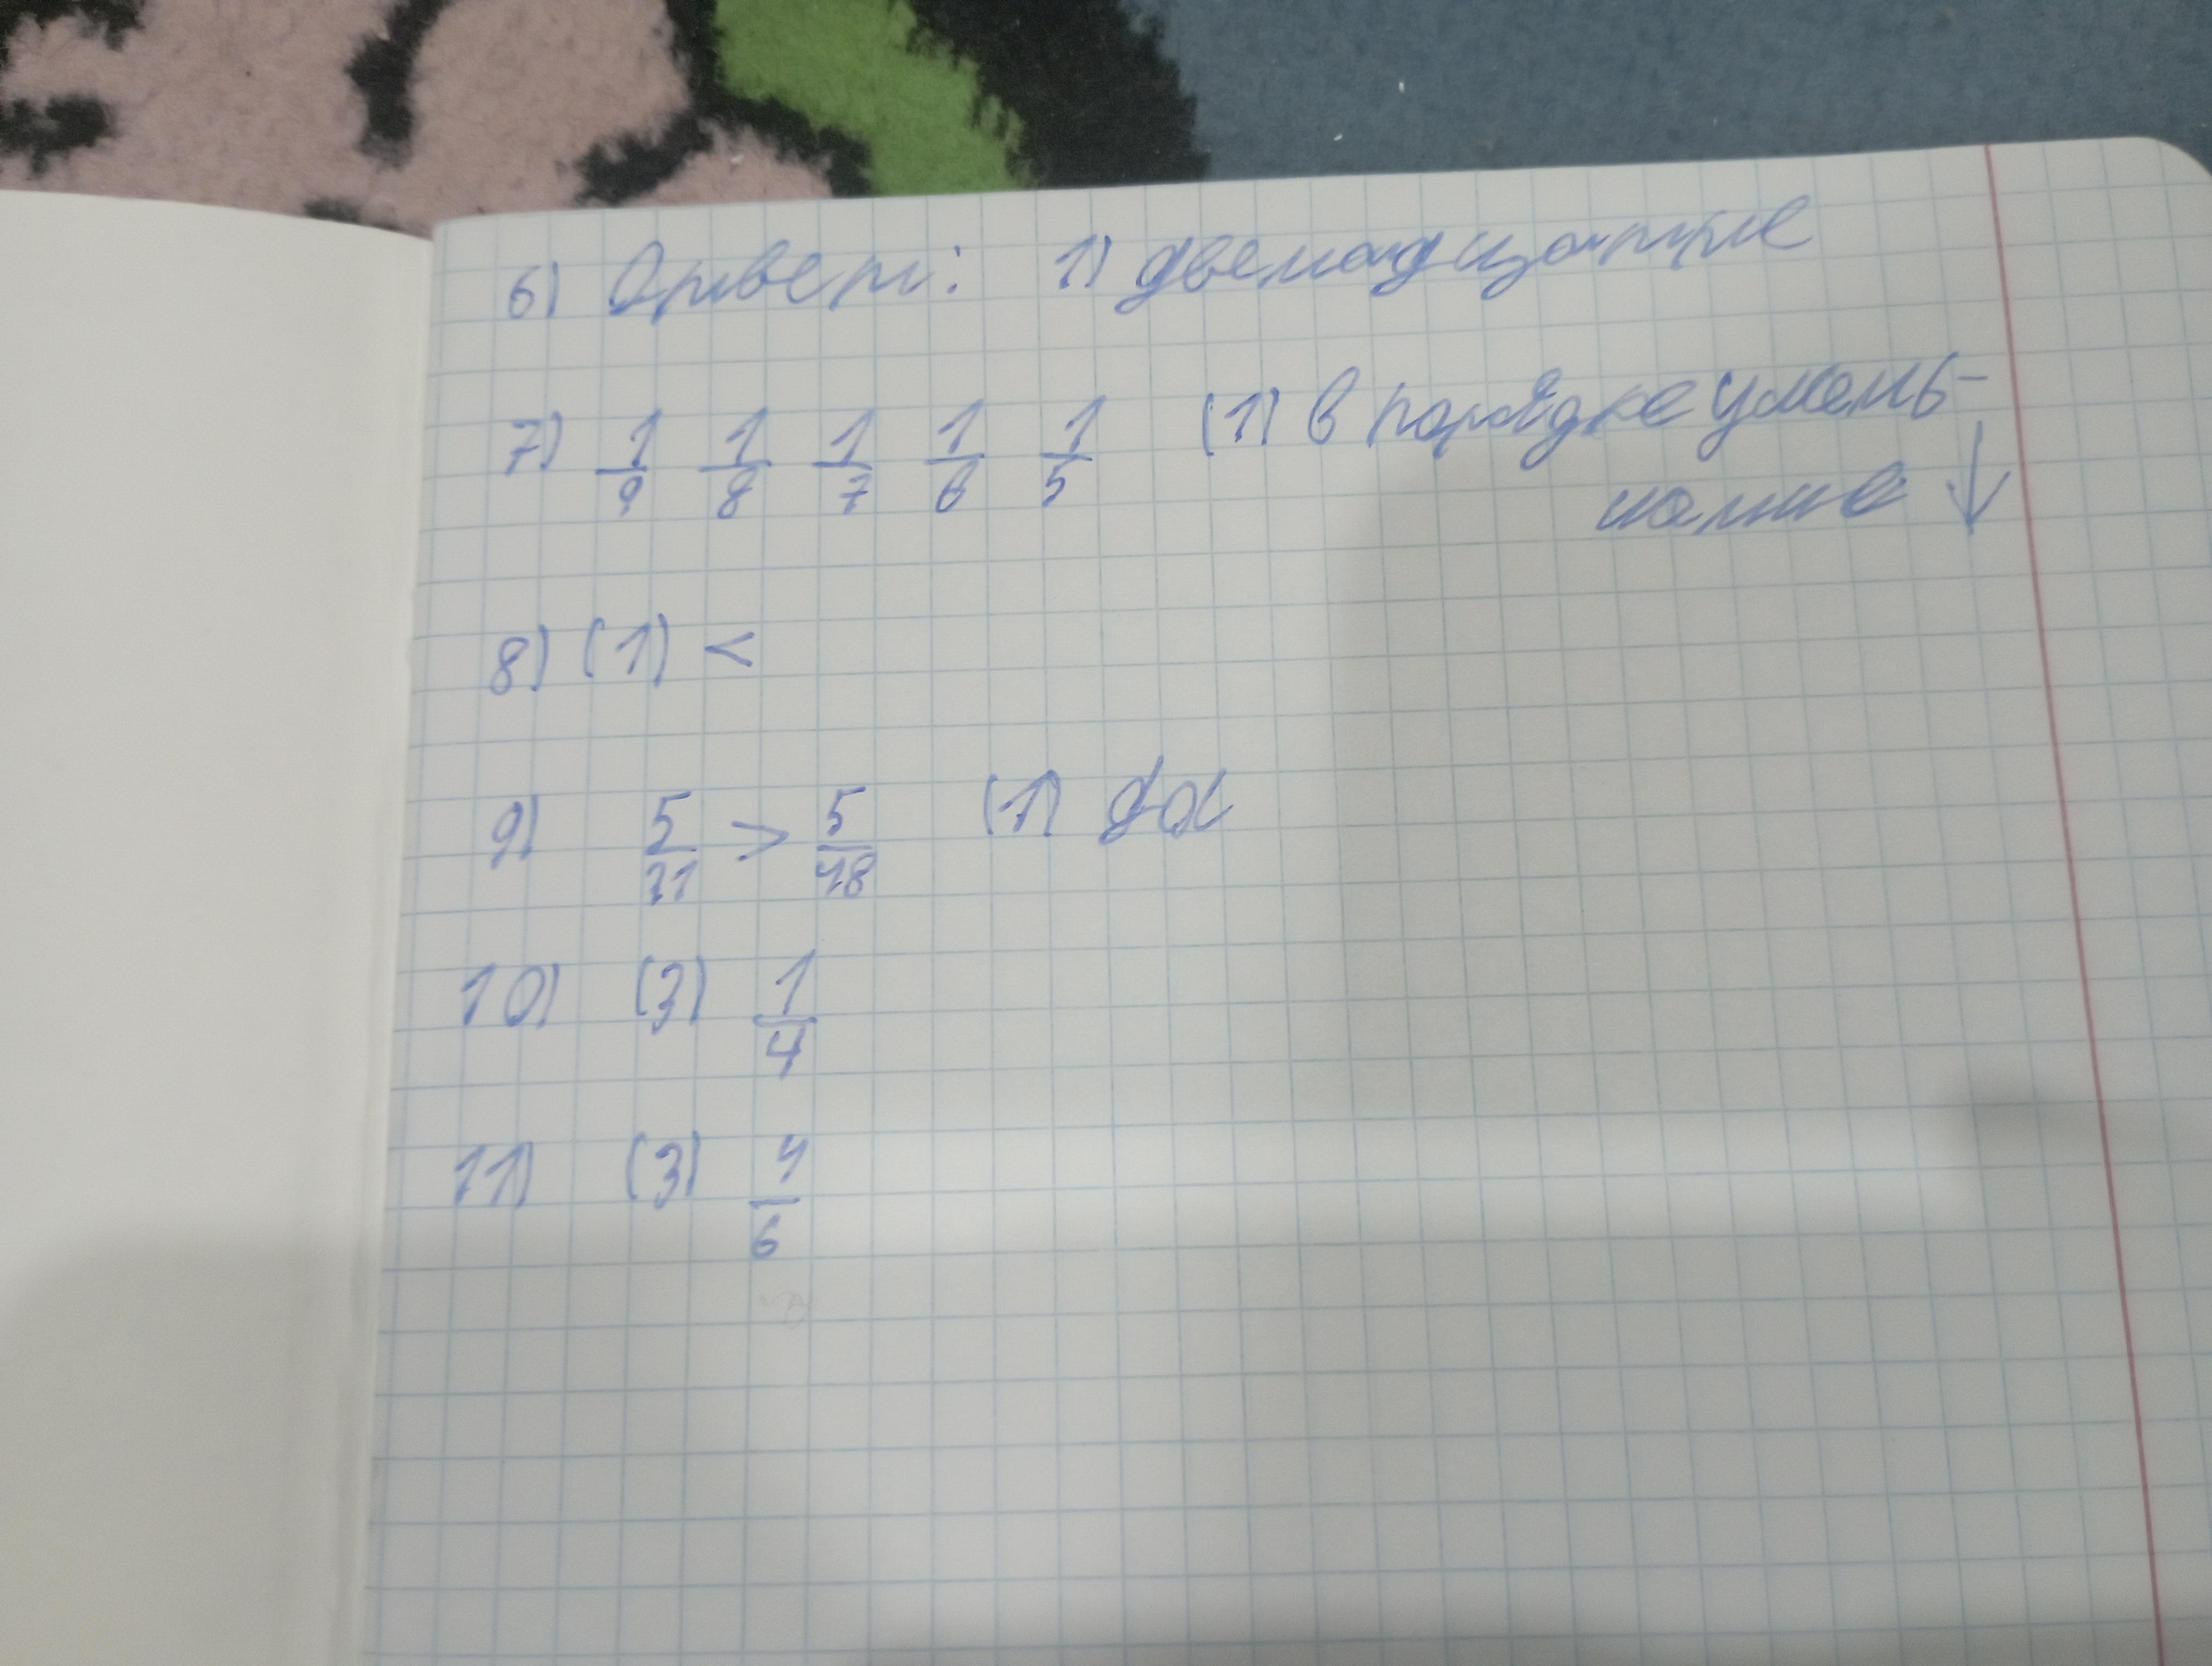 6) Ответ: 1) двенадцатые
7) 1/9 1/8 1/7 1/6 1/5 (1) в порядке умень-
шание ↓
8) (1) <
9) 5/21 > 5/18 (1) да
10) (3) 1/4
11) (3) 4/6